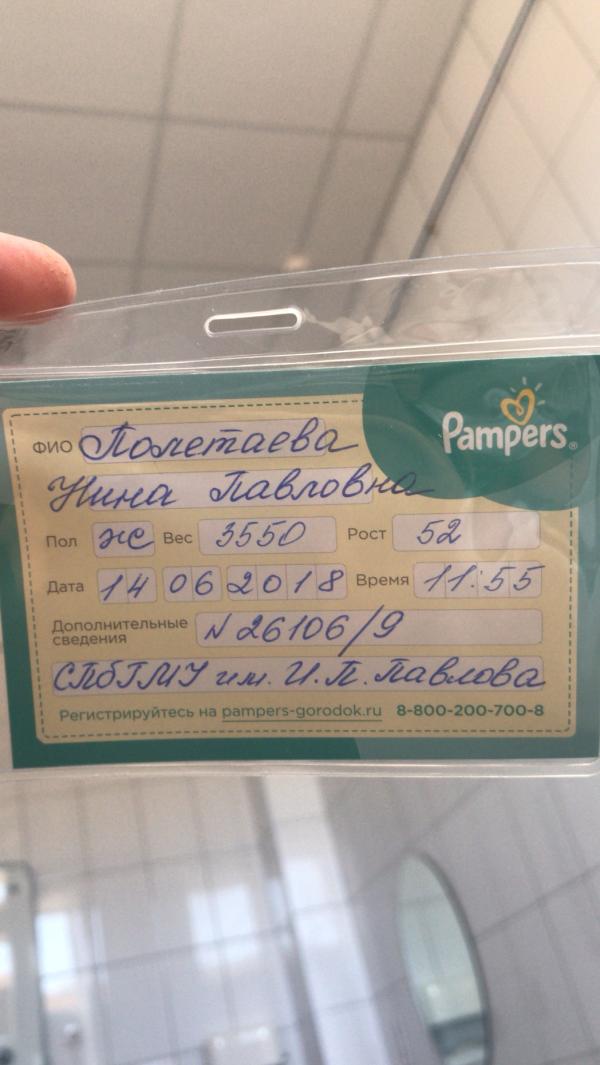 Pampers®
ФИО Полетаева
Нина Павловна
Пол ж Вес 3550 Рост 52
Дата 14 06 2018 Время 11:55
Дополнительные сведения N 26106/9
СПбГМУ им. И.П. Павлова
Регистрируйтесь на pampers-gorodok.ru 8-800-200-700-8